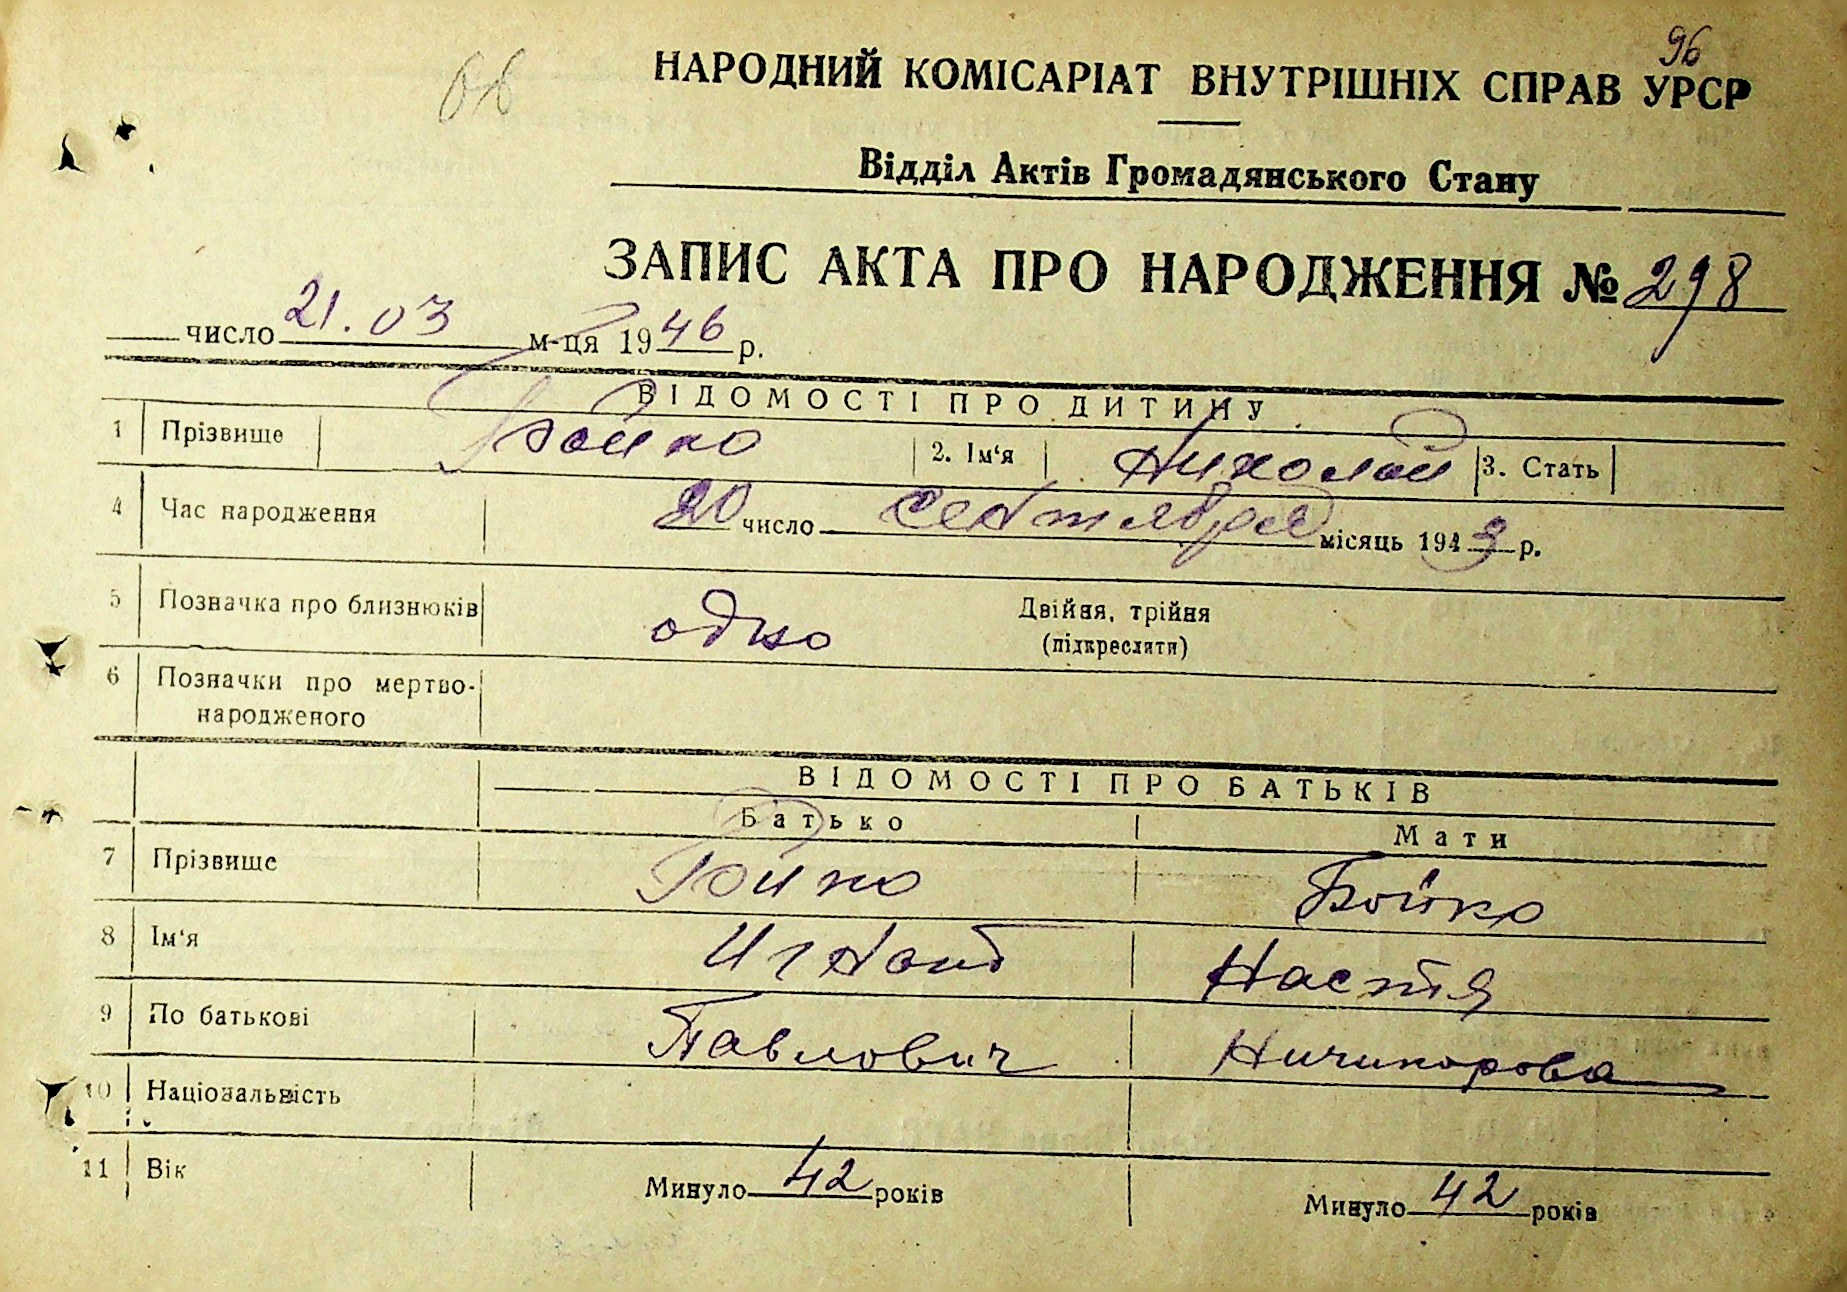 96
НАРОДНИЙ КОМІСАРІАТ ВНУТРІШНІХ СПРАВ УРСР
Відділ Актів Громадянського Стану
ЗАПИС АКТА ПРО НАРОДЖЕННЯ № 298
число 21.03 м-ця 1946 р.
ВІДОМОСТІ ПРО ДИТИНУ
1 Прізвище Бойко 2. Ім'я Николай 3. Стать
4 Час народження 20 число сентября місяць 1943 р.
5 Позначка про близнюків одно Двійня, трійня
(підкреслити)
6 Позначки про мертво-
народженого
ВІДОМОСТІ ПРО БАТЬКІВ
Батько Мати
7 Прізвище Бойко Бойко
8 Ім'я Игнат Настя
9 По батькові Павлович Ничипорова
10 Національність
11 Вік Минуло 42 років Минуло 42 років